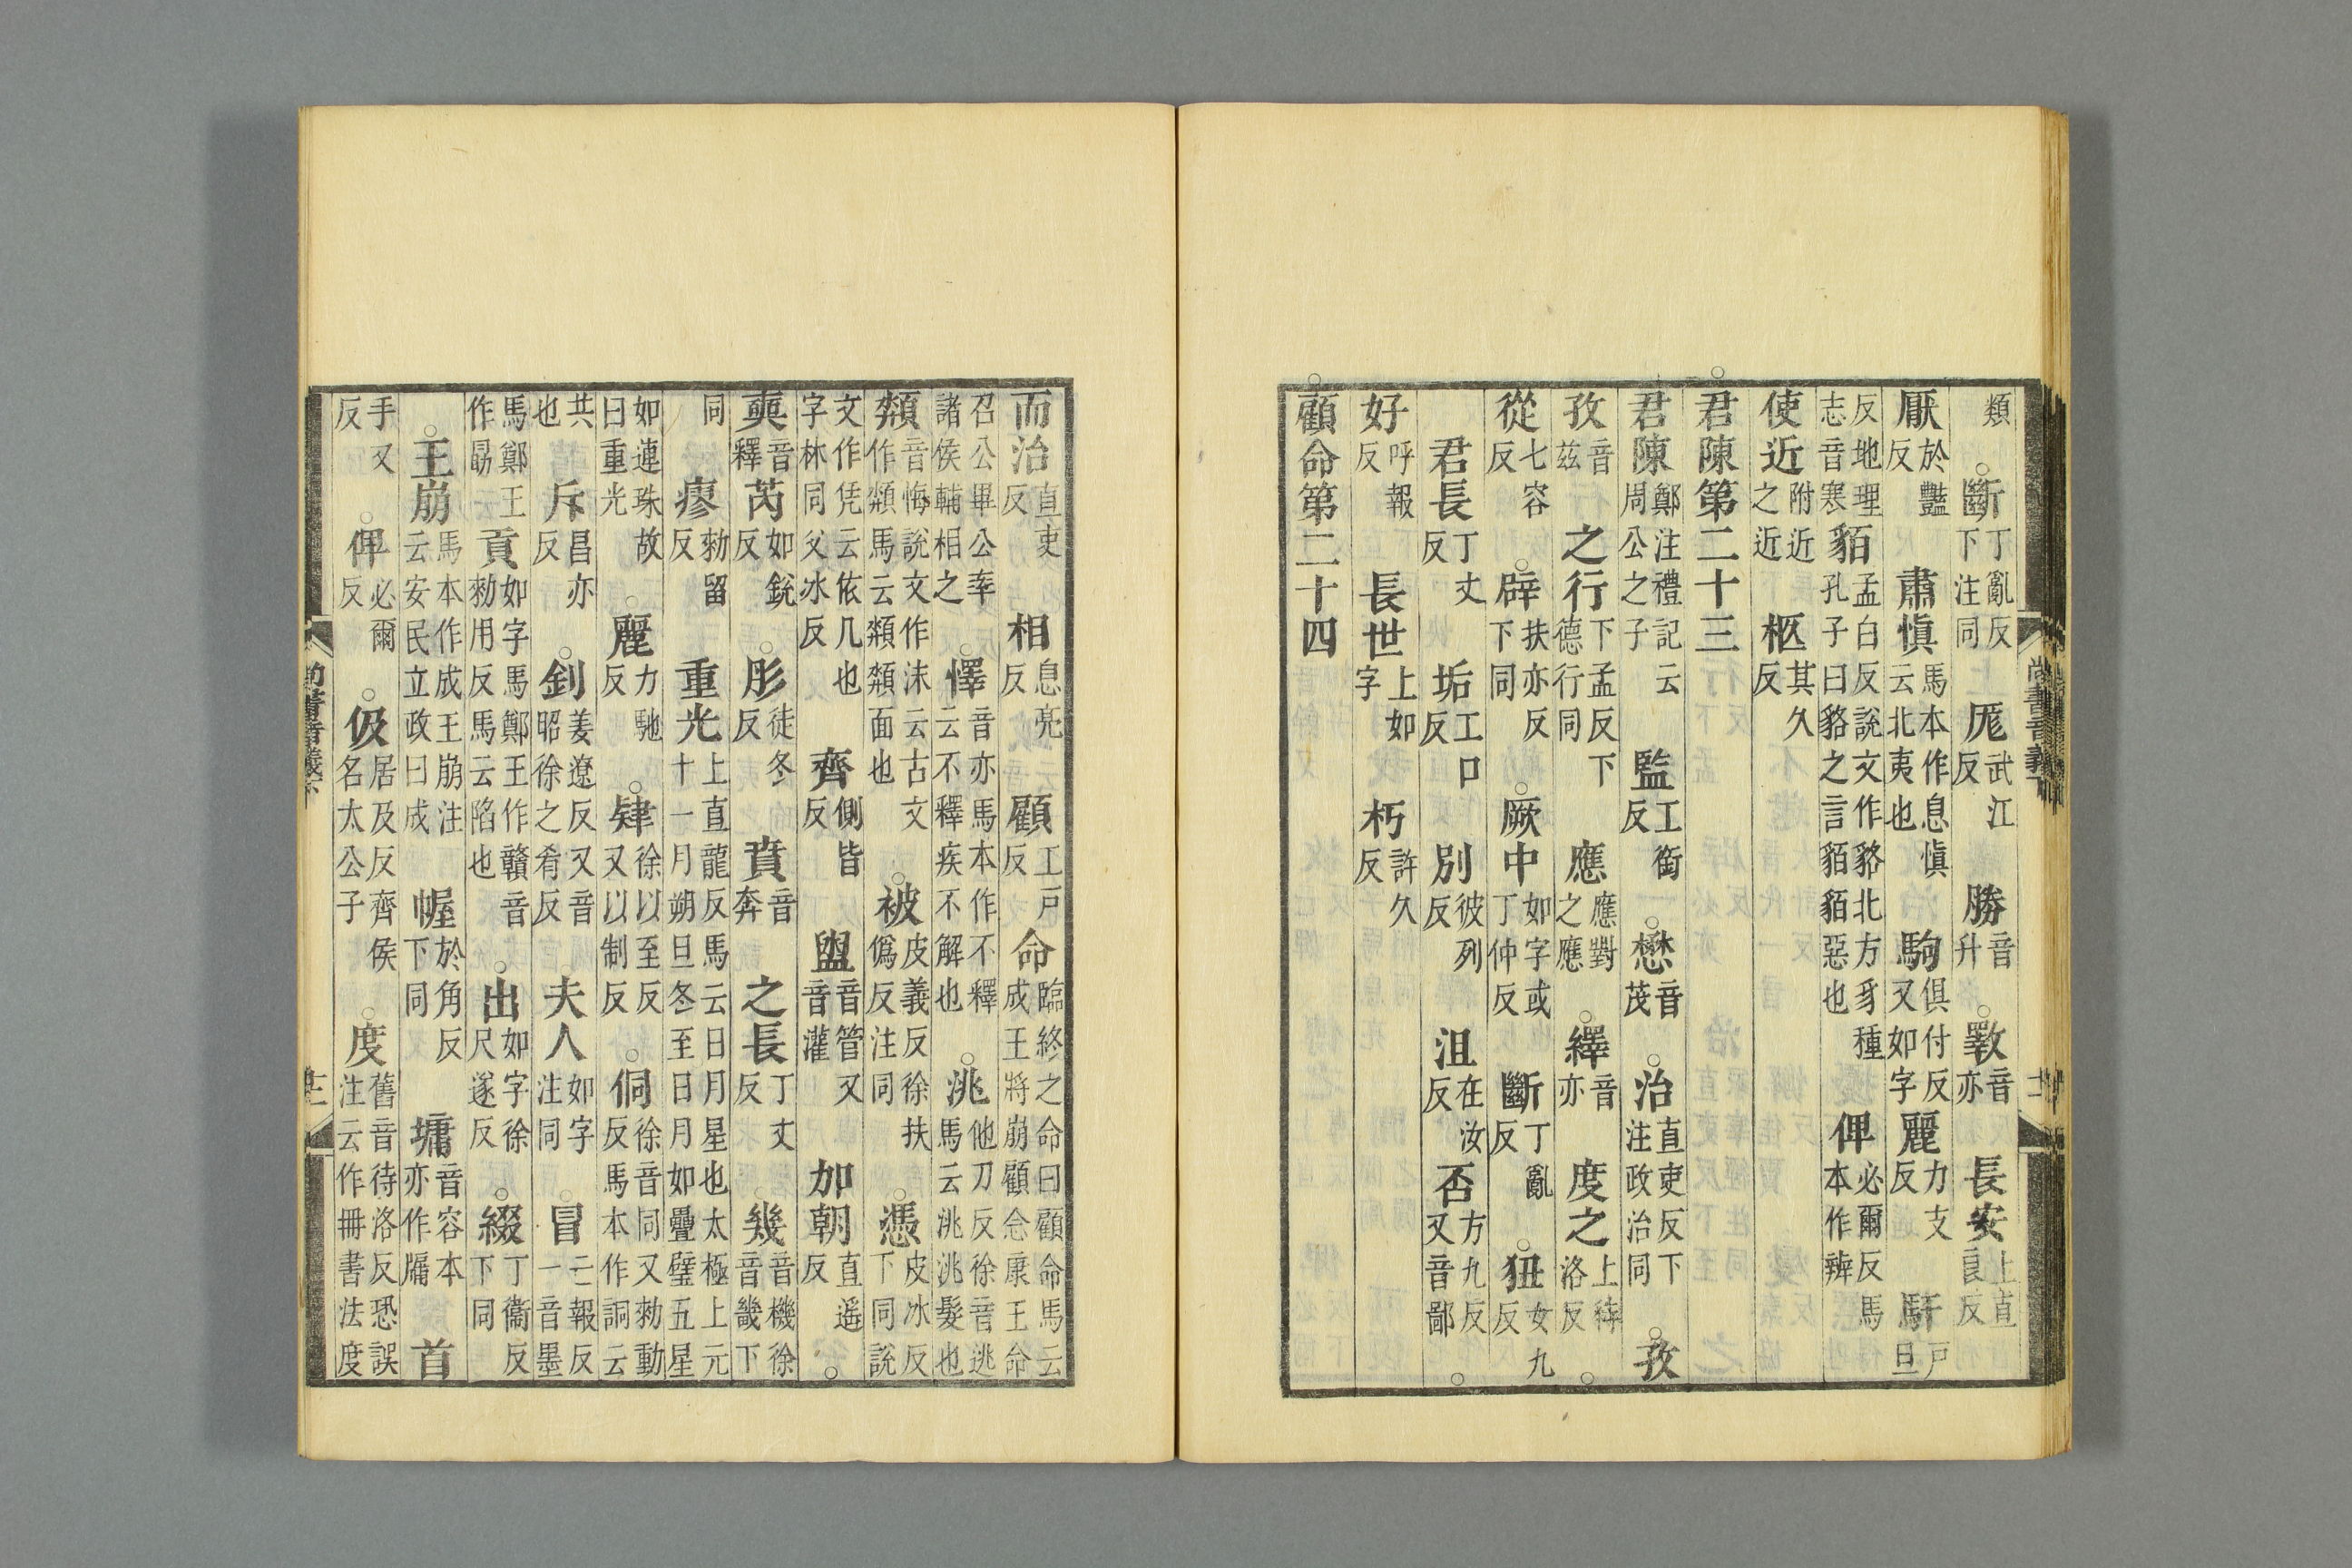 類○斷丁亂反下注同 厖武江反 勝音升○斁音亦 長安上直良反
厭於豔反 肅慎馬本作息慎云北夷也 駒俱付反又如字 麗力支反 馯戶旦
反地理志音寒 貊孟白反說文作貉北方豸種孔子曰貉之言貊貊惡也 俾必爾反馬本作辨
使近附近之近 柩其久反
○君陳第二十三
君陳鄭注禮記云周公之子 監工銜反○懋音茂○治直吏反下注政治同○孜
孜音茲 之行下孟反下德行同 應應對之應○繹音亦 度之上待洛反○
從七容反○辟扶亦反下同○厥中如字或丁仲反 斷丁亂反○狃女九反
君長丁丈反 垢工口反 別彼列反 沮在汝反 否方九反又音鄙○
好呼報反 長世上如字 朽許久反
○顧命第二十四
尚書音義下 十二
而治直吏反 相息亮反 顧工戶反 命臨終之命曰顧命馬云成王將崩顧命康王命
召公畢公率諸侯輔相之○懌音亦馬本作不釋云不釋疾不解也○洮他刀反徐音逃馬云洮洮髮也
頮音悔說文作沬云古文作頮馬云頮頮面也○被皮義反徐扶僞反注同○憑皮冰反下同說
文作凭云依几也字林同父冰反 齊側皆反 盥音管又音灌 加朝直遥反○
奭音釋 芮如銳反○彤徒冬反 賁音奔 之長丁丈反 幾音機徐音畿下
同 瘳勑留反 重光上直龍反馬云日月星也太極上元十一月朔旦冬至日月如疊璧五星
如連珠故曰重光○麗力馳反○肄徐以至反又以制反○侗徐音同又勑動反馬本作詷云
共也 斥昌亦反○釗姜遼反又音昭徐之肴反 夫人如字注同○冒亡報反一音墨
馬鄭王作勗云 貢如字馬鄭王作贛音勑用反馬云陷也○出如字徐尺遂反○綴丁衞反下同
○王崩馬本作成王崩注云安民立政曰成 幄於角反下同 墉音容本亦作牗 首
手又反○俾必爾反○伋居及反齊侯名太公子○度舊音待洛反恐誤注云作冊書法度